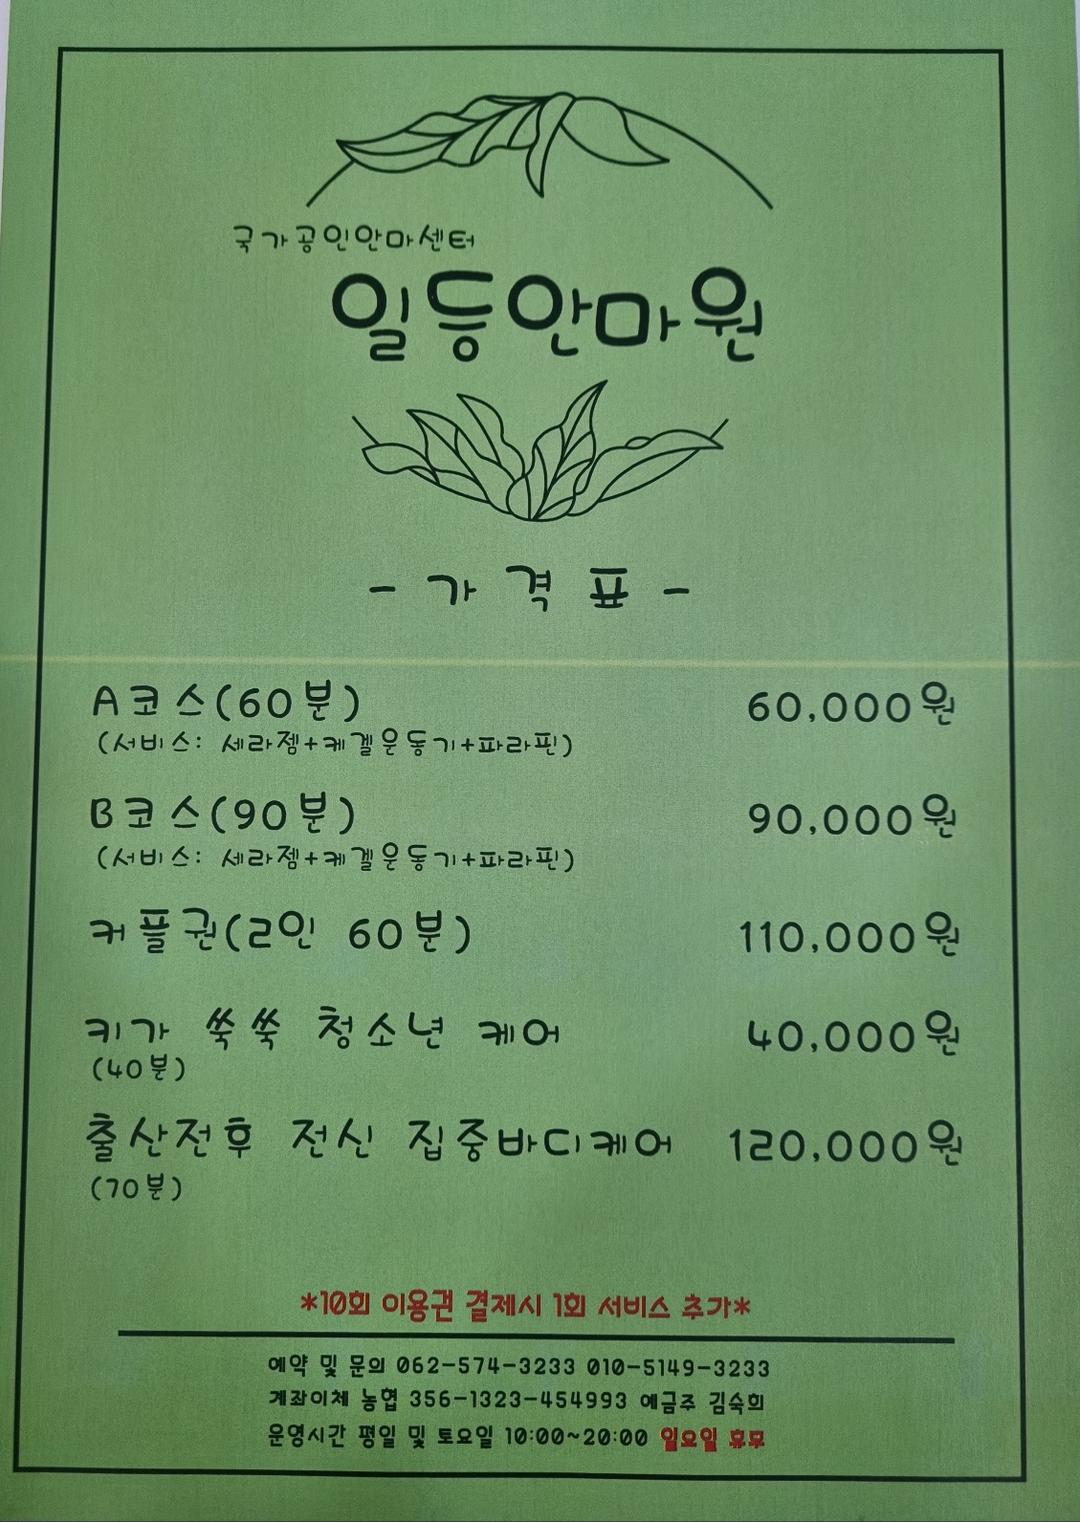 국가공인안마센터
일등안마원
- 가격표 -
A코스(60분) 60,000원
(서비스: 세라젬+케겔운동기+파라핀)
B코스(90분) 90,000원
(서비스: 세라젬+케겔운동기+파라핀)
커플권(2인 60분) 110,000원
키가 쑥쑥 청소년 케어 40,000원
(40분)
출산전후 전신 집중바디케어 120,000원
(70분)
*10회 이용권 결제시 1회 서비스 추가*
예약 및 문의 062-574-3233 010-5149-3233
계좌이체 농협 356-1323-454993 예금주 김숙희
운영시간 평일 및 토요일 10:00~20:00 일요일 휴무